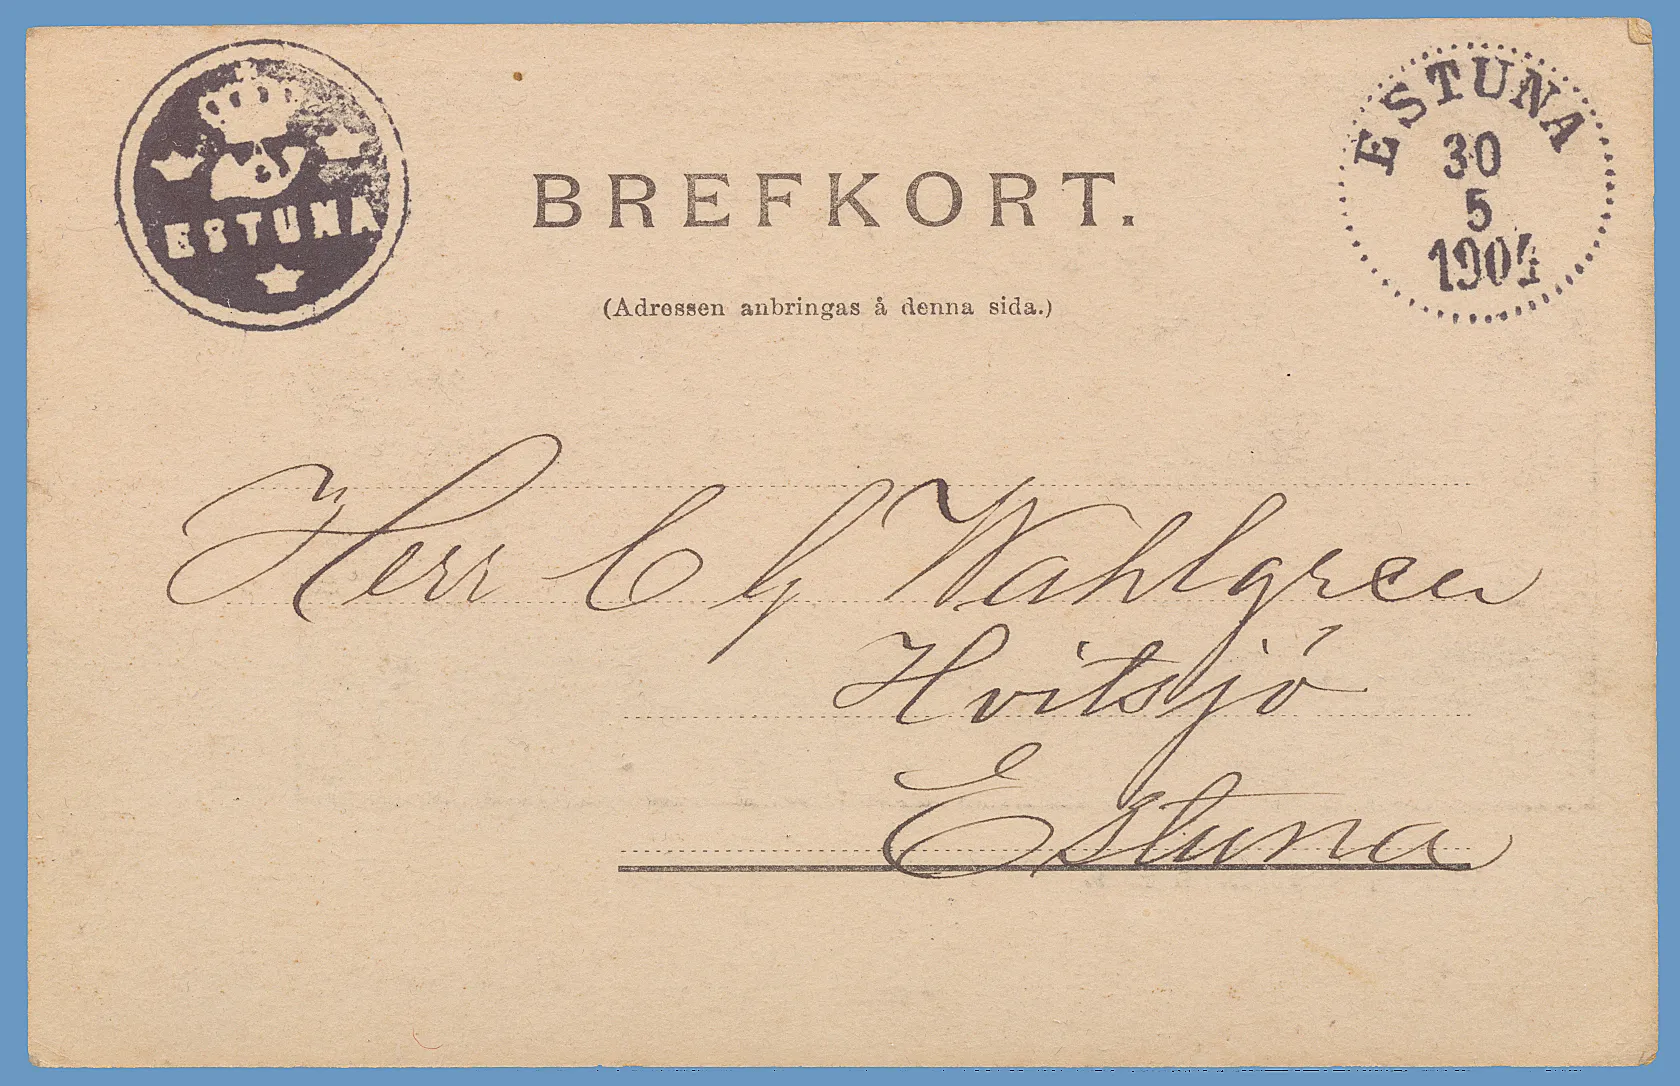 ESTUNA
ESTUNA
30
5
1904
BREFKORT.
(Adressen anbringas å denna sida.)
Herr C G Wahlgren
Hvitsjö
Estuna